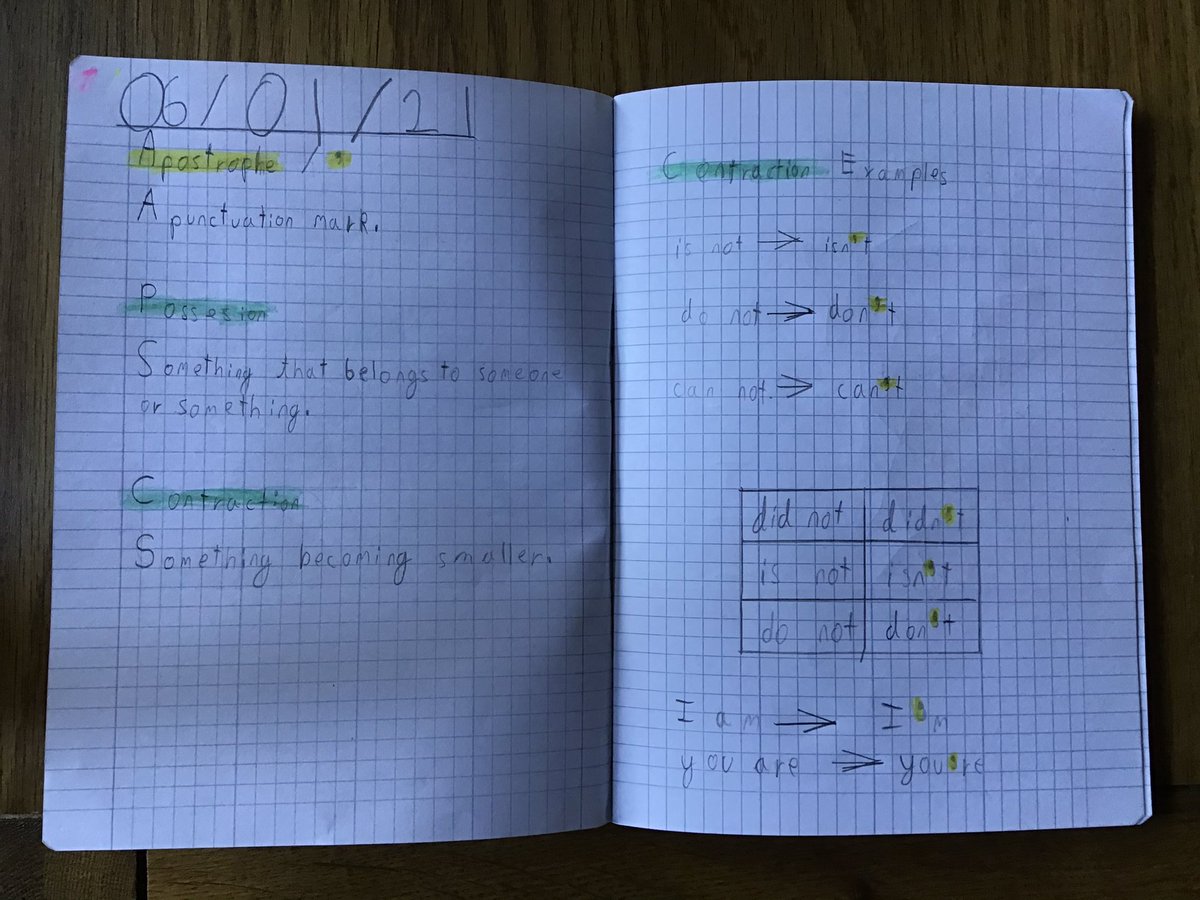 06/01/21
Apostrophe / '
A punctuation mark.
Possesion
Something that belongs to someone
or something.
Contraction
Something becoming smaller.
Contraction Examples
is not → isn't
do not → don't
can not. → can't
did not didn't
is not isn't
do not don't
I am → I'm
you are → you're